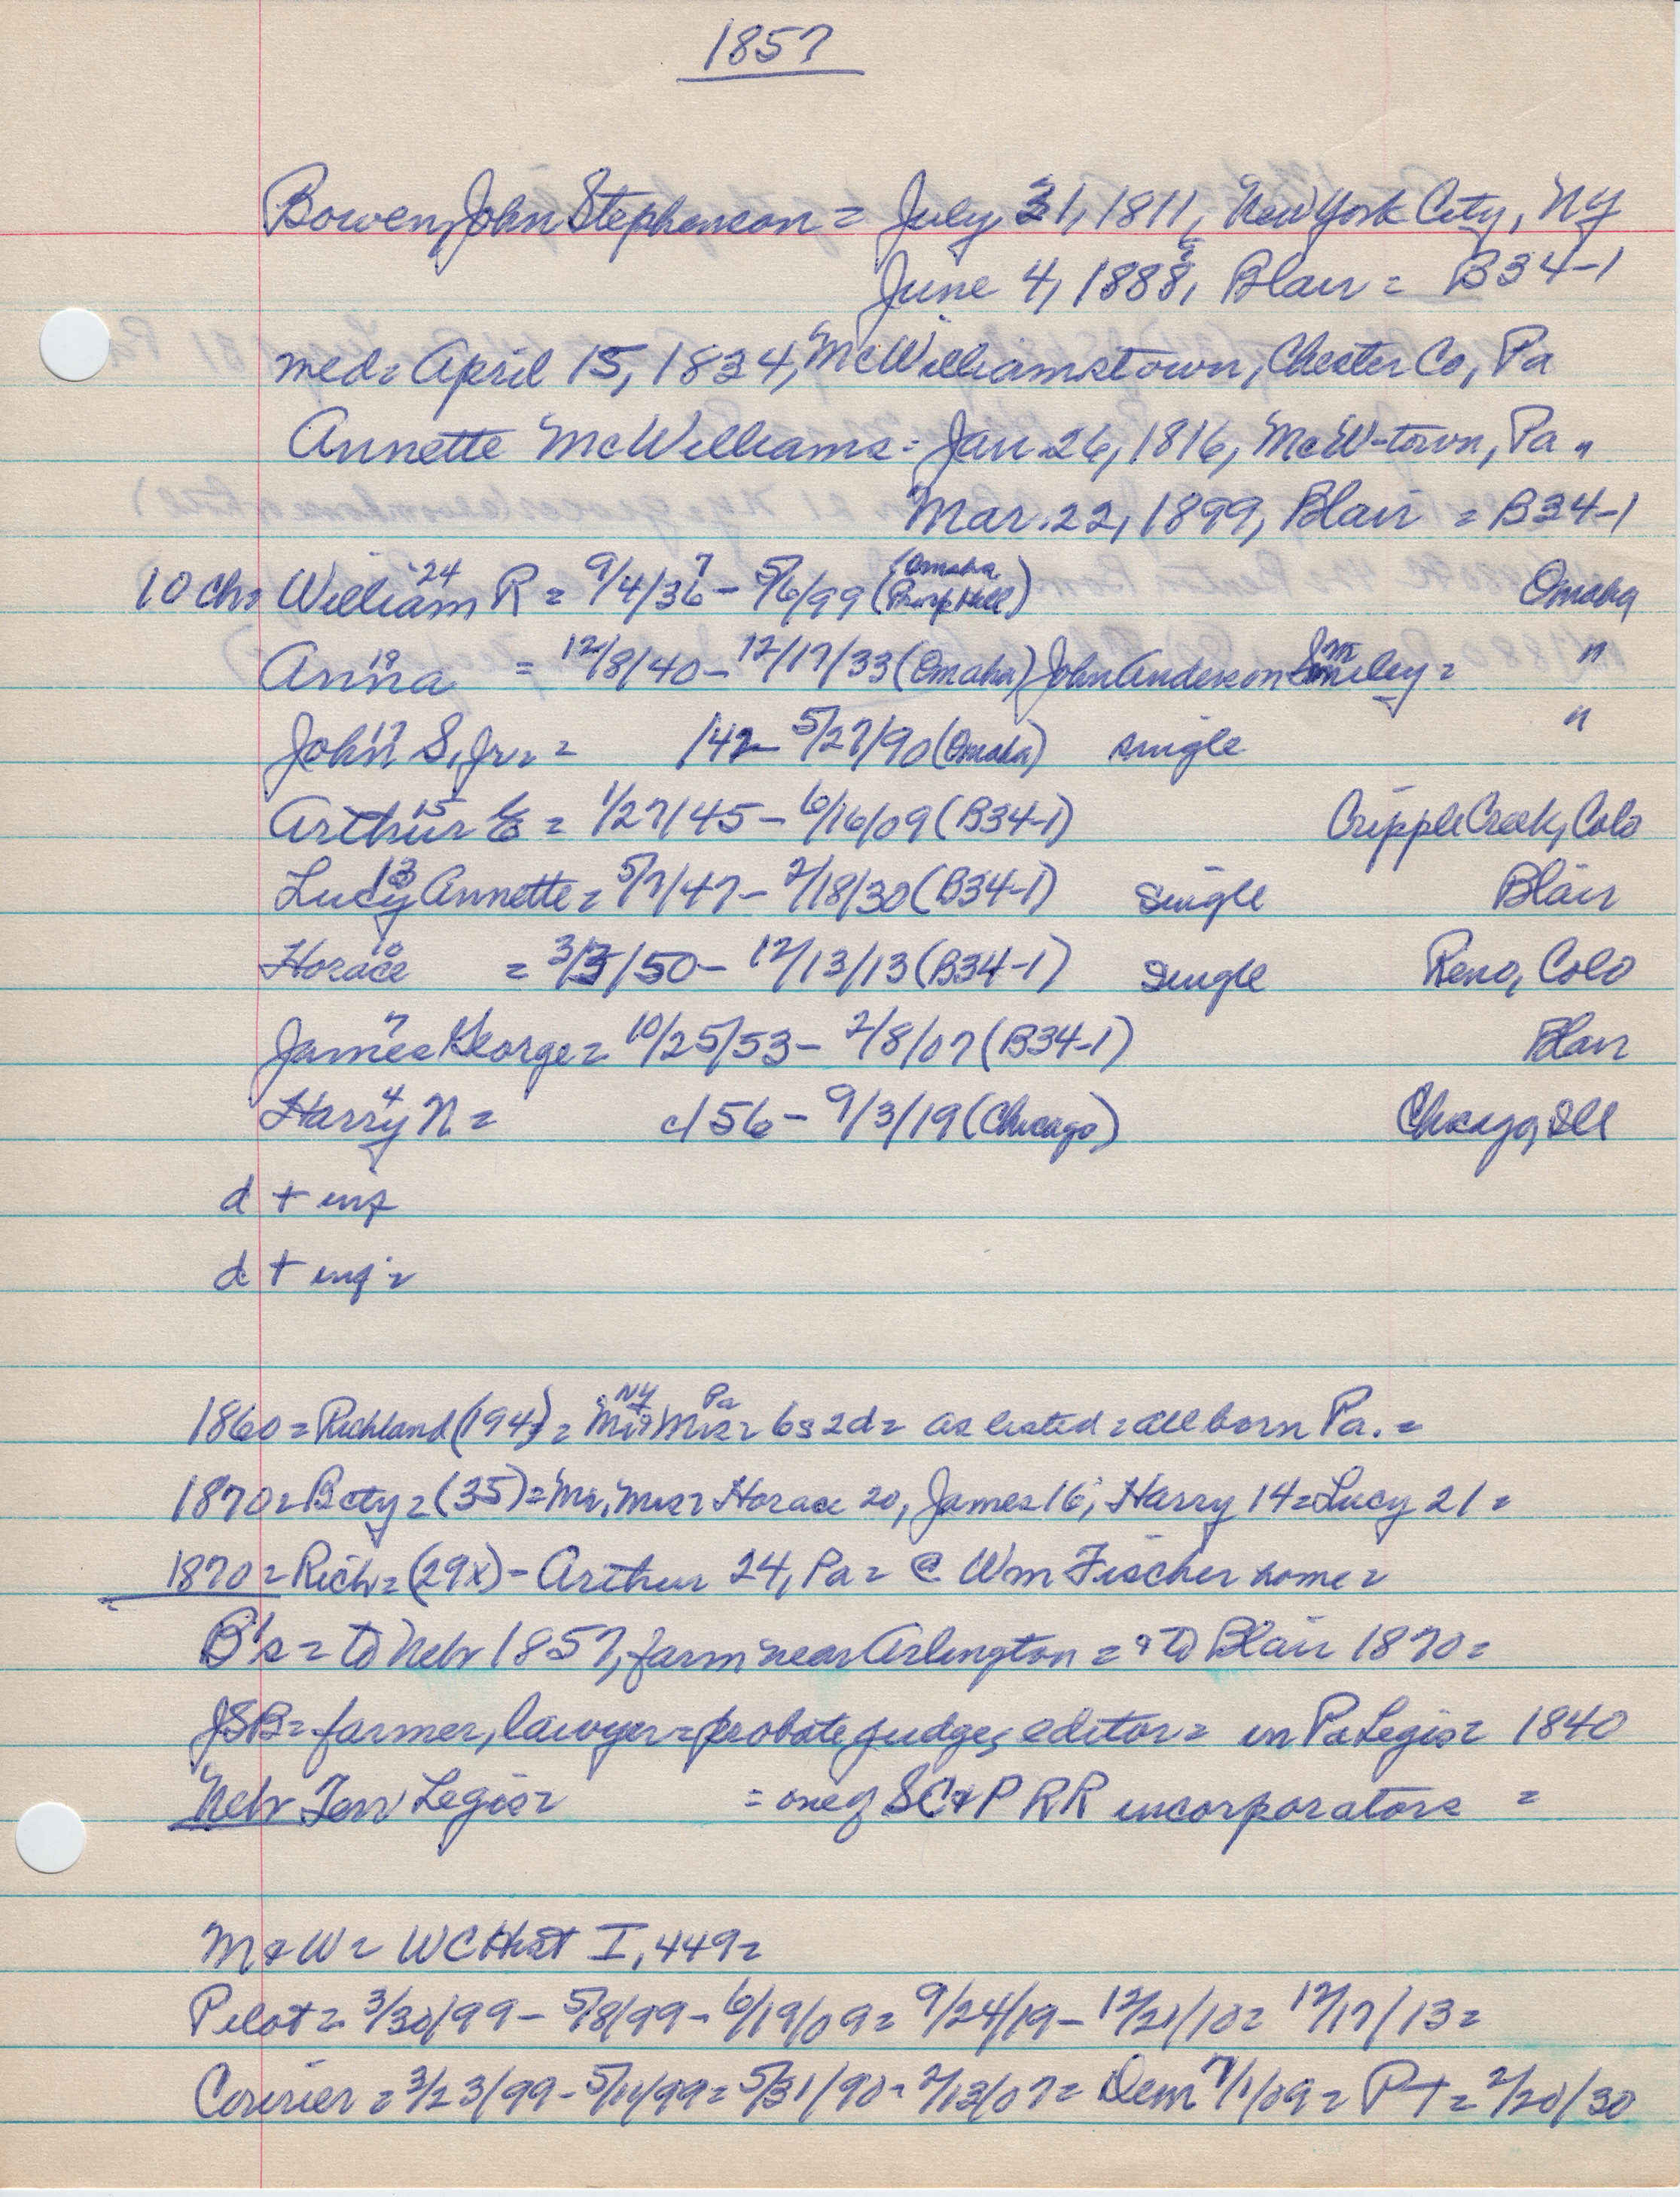 1857
Bowen, John Stephenson = July 31, 1811, New York City, NY
June 4, 1888, Blair = B34-1
med = April 15, 1834, McWilliamstown, Chester Co, Pa
Annette McWilliams = Jan 26, 1816, McW-town, Pa
Mar. 22, 1899, Blair = B34-1
10 ch = William R 24 = 9/4/36 7 - 5/6/99 (Omaha Prosp Hill) Omaha
Anna 19 = 12/8/40 - 12/17/33 (Omaha) John Anderson Smiley = "
John S, Jr. 17 = /42 - 5/27/90 (Omaha) single "
Arthur E 15 = 1/27/45 - 6/16/09 (B34-1) Cripple Creek, Colo
Lucy Annette 13 = 5/7/47 - 2/18/30 (B34-1) single Blair
Horace 10 = 3/3/50 - 12/13/13 (B34-1) single Reno, Colo
James George 7 = 10/25/53 - 2/8/07 (B34-1) Blair
Harry N 4 = c/56 - 9/3/19 (Chicago) Chicago, Ill
d + inf
d + inf =
1860 = Richland (194) = Mr NY Mrs Pa = 6s 2d = as listed = all born Pa. =
1870 = B cty = (35) = Mr, Mrs = Horace 20, James 16, Harry 14 = Lucy 21 =
1870 = Rich = (29x) - Arthur 24, Pa = @ Wm Fischer home =
B's = to Nebr 1857, farm near Arlington = to Blair 1870 =
JSB = farmer, lawyer = probate judge, editor = in Pa Legis = 1840
Nebr Terr Legis = = one of SC&P RR incorporators =
M & W = WC Hist I, 449 =
Pilot = 3/30/99 - 5/8/99 - 6/19/09 = 9/24/19 - 12/21/10 = 12/17/13 =
Courier = 3/23/99 - 5/11/99 = 5/31/90 - 2/13/07 = Dem 7/1/09 = PT = 2/20/30